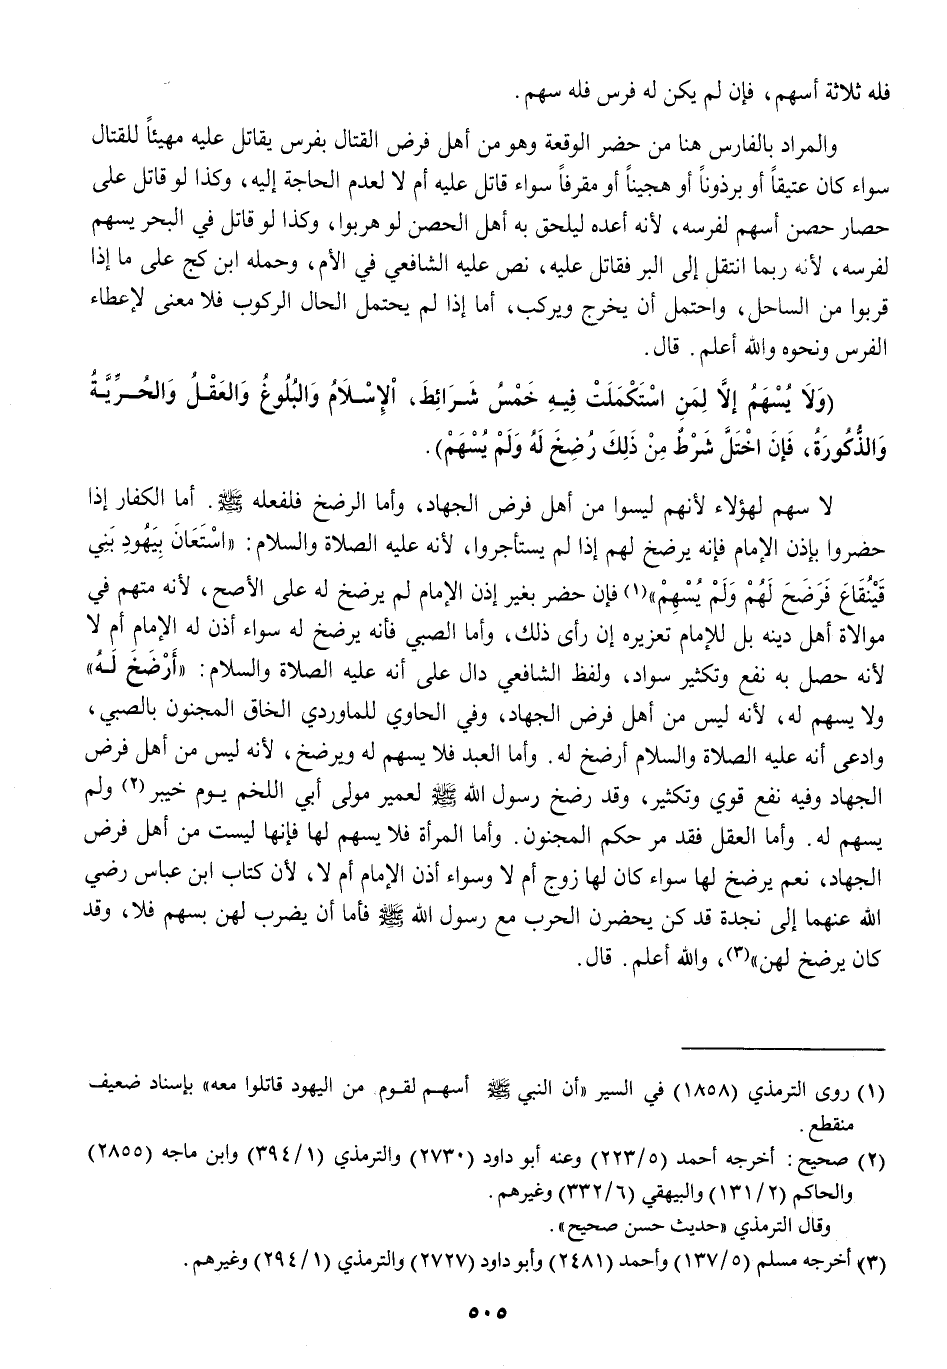 فله ثلاثة أسهم، فإن لم يكن له فرس فله سهم.
والمراد بالفارس هنا من حضر الوقعة وهو من أهل فرض القتال بفرس يقاتل عليه مهيئاً للقتال
سواء كان عتيقاً أو برذوناً أو هجيناً أو مقرفاً سواء قاتل عليه أم لا لعدم الحاجة إليه، وكذا لو قاتل على
حصار حصن أسهم لفرسه، لأنه أعده ليلحق به أهل الحصن لو هربوا، وكذا لو قاتل في البحر يسهم
لفرسه، لأنه ربما انتقل إلى البر فقاتل عليه، نص عليه الشافعي في الأم، وحمله ابن كج على ما إذا
قربوا من الساحل، واحتمل أن يخرج ويركب، أما إذا لم يحتمل الحال الركوب فلا معنى لإعطاء
الفرس ونحوه والله أعلم. قال.
(وَلَا يُسْهَمُ إِلَّا لِمَنِ اسْتَكْمَلَتْ فِيهِ خَمْسُ شَرَائِطَ، الْإِسْلَامُ وَالْبُلُوغُ وَالعَقْلُ وَالحُرِّيَّةُ
وَالذُّكُورَةُ، فَإِنَ اخْتَلَّ شَرْطٌ مِنْ ذَلِكَ رُضِخَ لَهُ وَلَمْ يُسْهَمْ).
لا سهم لهؤلاء لأنهم ليسوا من أهل فرض الجهاد، وأما الرضخ فلفعله ﷺ. أما الكفار إذا
حضروا بإذن الإمام فإنه يرضخ لهم إذا لم يستأجروا، لأنه عليه الصلاة والسلام: «اسْتَعَانَ بِيَهُودِ بَنِي
قَيْنُقَاعَ فَرَضَخَ لَهُمْ وَلَمْ يُسْهِمْ»(١) فإن حضر بغير إذن الإمام لم يرضخ له على الأصح، لأنه متهم في
موالاة أهل دينه بل للإمام تعزيره إن رأى ذلك، وأما الصبي فأنه يرضخ له سواء أذن له الإمام أم لا
لأنه حصل به نفع وتكثير سواد، ولفظ الشافعي دال على أنه عليه الصلاة والسلام: «أَرْضَخَ لَهُ»
ولا يسهم له، لأنه ليس من أهل فرض الجهاد، وفي الحاوي للماوردي الخاق المجنون بالصبي،
وادعى أنه عليه الصلاة والسلام أرضخ له. وأما العبد فلا يسهم له ويرضخ، لأنه ليس من أهل فرض
الجهاد وفيه نفع قوي وتكثير، وقد رضخ رسول الله ﷺ لعمير مولى أبي اللخم يوم خيبر(٢) ولم
يسهم له. وأما العقل فقد مر حكم المجنون. وأما المرأة فلا يسهم لها فإنها ليست من أهل فرض
الجهاد، نعم يرضخ لها سواء كان لها زوج أم لا وسواء أذن الإمام أم لا، لأن كتاب ابن عباس رضي
الله عنهما إلى نجدة قد كن يحضرن الحرب مع رسول الله ﷺ فأما أن يضرب لهن بسهم فلا، وقد
كان يرضخ لهن»(٣)، والله أعلم. قال.
(١) روى الترمذي (١٨٥٨) في السير «أن النبي ﷺ أسهم لقوم من اليهود قاتلوا معه» بإسناد ضعيف
منقطع.
(٢) صحيح: أخرجه أحمد (٢٢٣/٥) وعنه أبو داود (٢٧٣٠) والترمذي (٣٩٤/١) وابن ماجه (٢٨٥٥)
والحاكم (١٣١/٢) والبيهقي (٣٣٢/٦) وغيرهم.
وقال الترمذي «حديث حسن صحيح».
(٣) أخرجه مسلم (١٣٧/٥) وأحمد (٢٤٨١) وأبو داود (٢٧٢٧) والترمذي (٢٩٤/١) وغيرهم.
٥٠٥